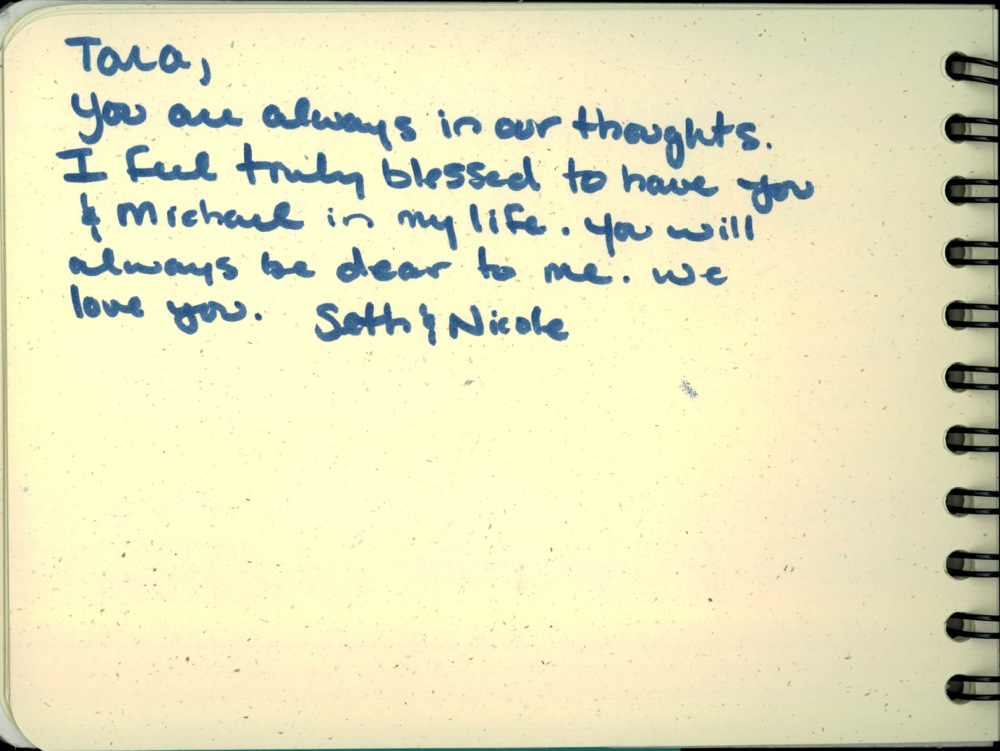 Tara,
You are always in our thoughts.
I feel truly blessed to have you
& Michael in my life. You will
always be dear to me. We
love you. Seth & Nicole